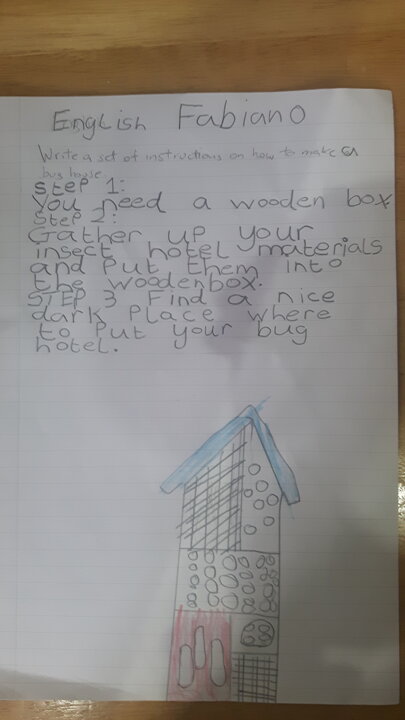 English Fabiano
Write a set of instructions on how to make a
bug house.
Step 1:
You need a wooden box
Step 2:
Gather up your
insect hotel materials
and Put them into
the woodenbox.
STEP 3 Find a nice
dark Place where
to Put your bug
hotel.